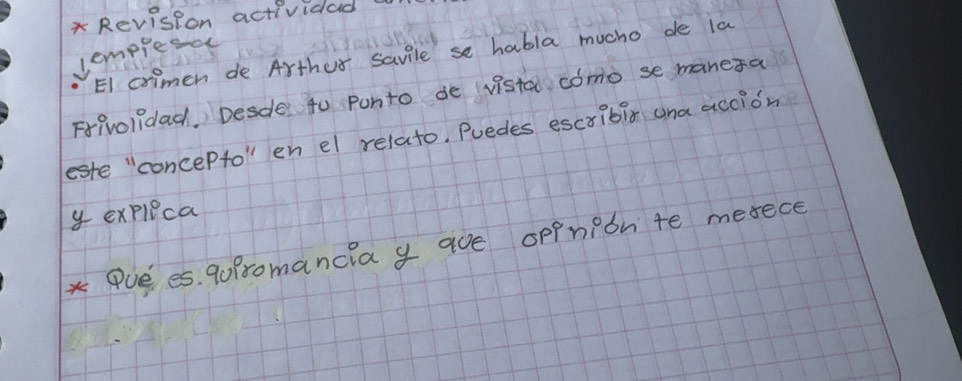 * Revisión actividad
empieza
• El crimen de Arthur savile se habla mucho de la
Frivolidad. Desde tu punto de vista cómo se maneja
este "concepto" en el relato. Puedes escribir una acción
y explica
* Qué es quiromancia y que opinión te merece